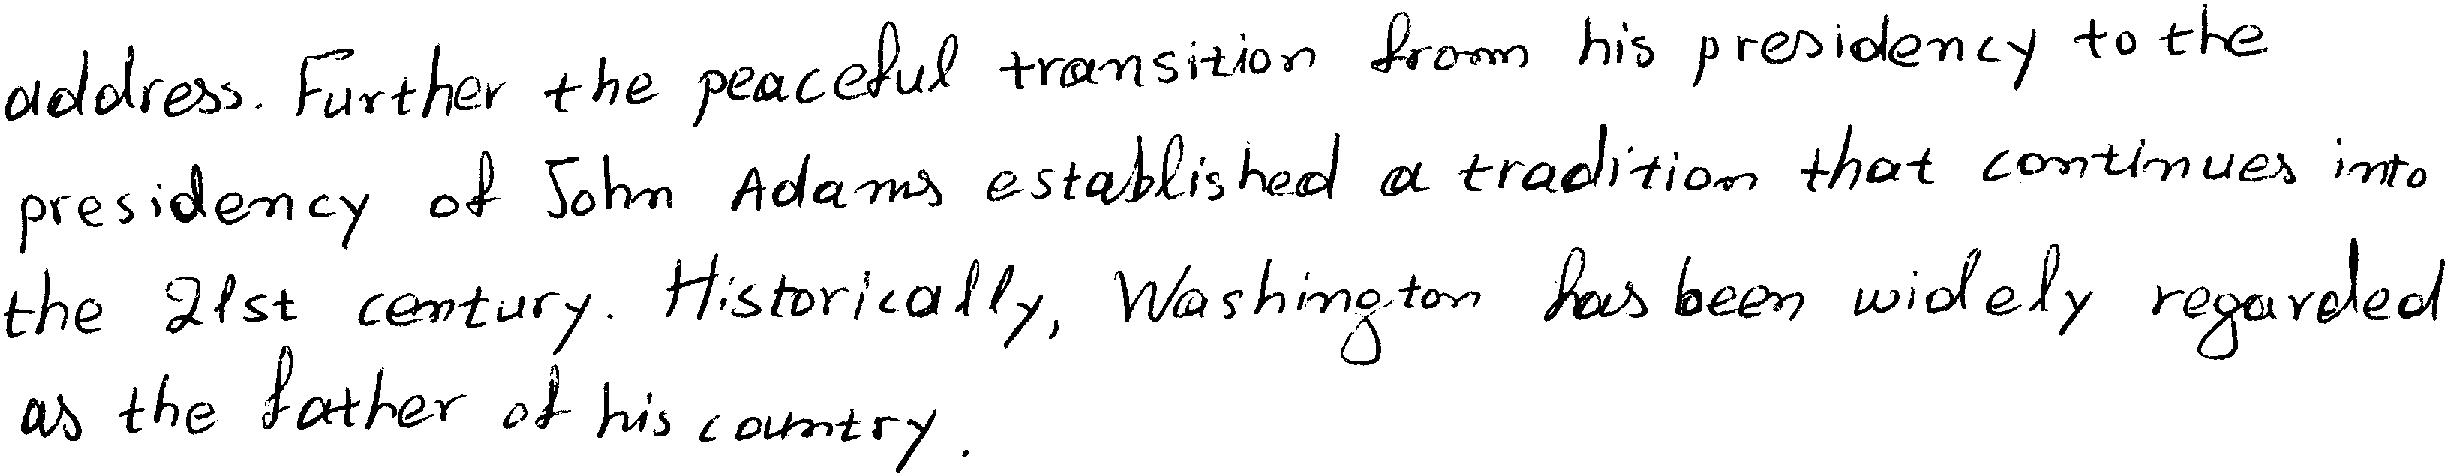 address. Further the peaceful transition from his presidency to the
presidency of John Adams established a tradition that continues into
the 21st century. Historically, Washington has been widely regarded
as the father of his country.